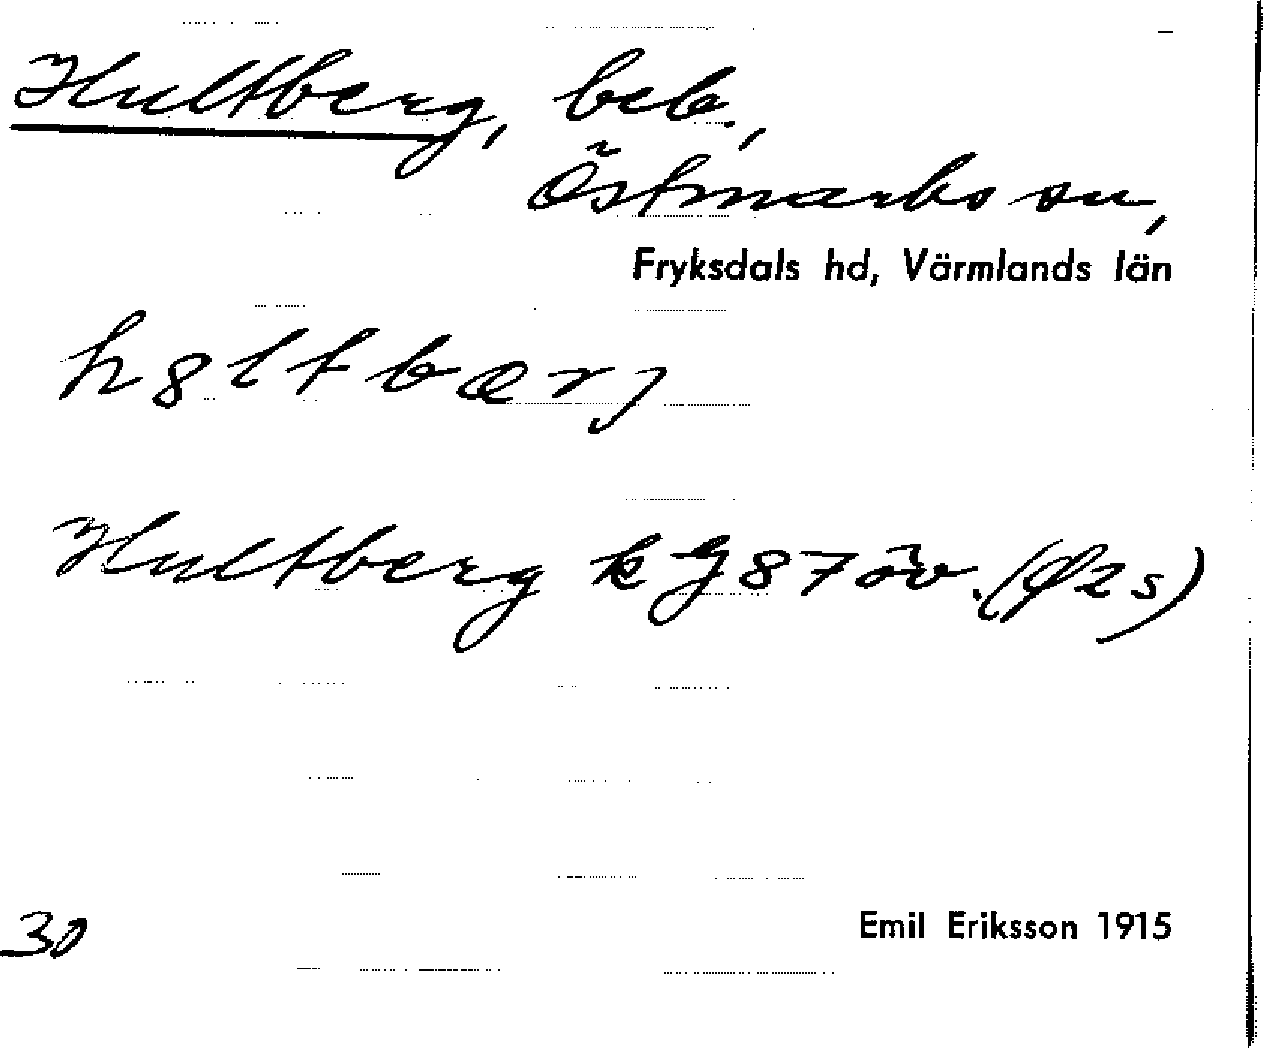 Hultberg, beb.,
Östmarks sn,
Fryksdals hd, Värmlands län
h8ltbærj
Hultberg k J87öv.
30
Emil Eriksson 1915